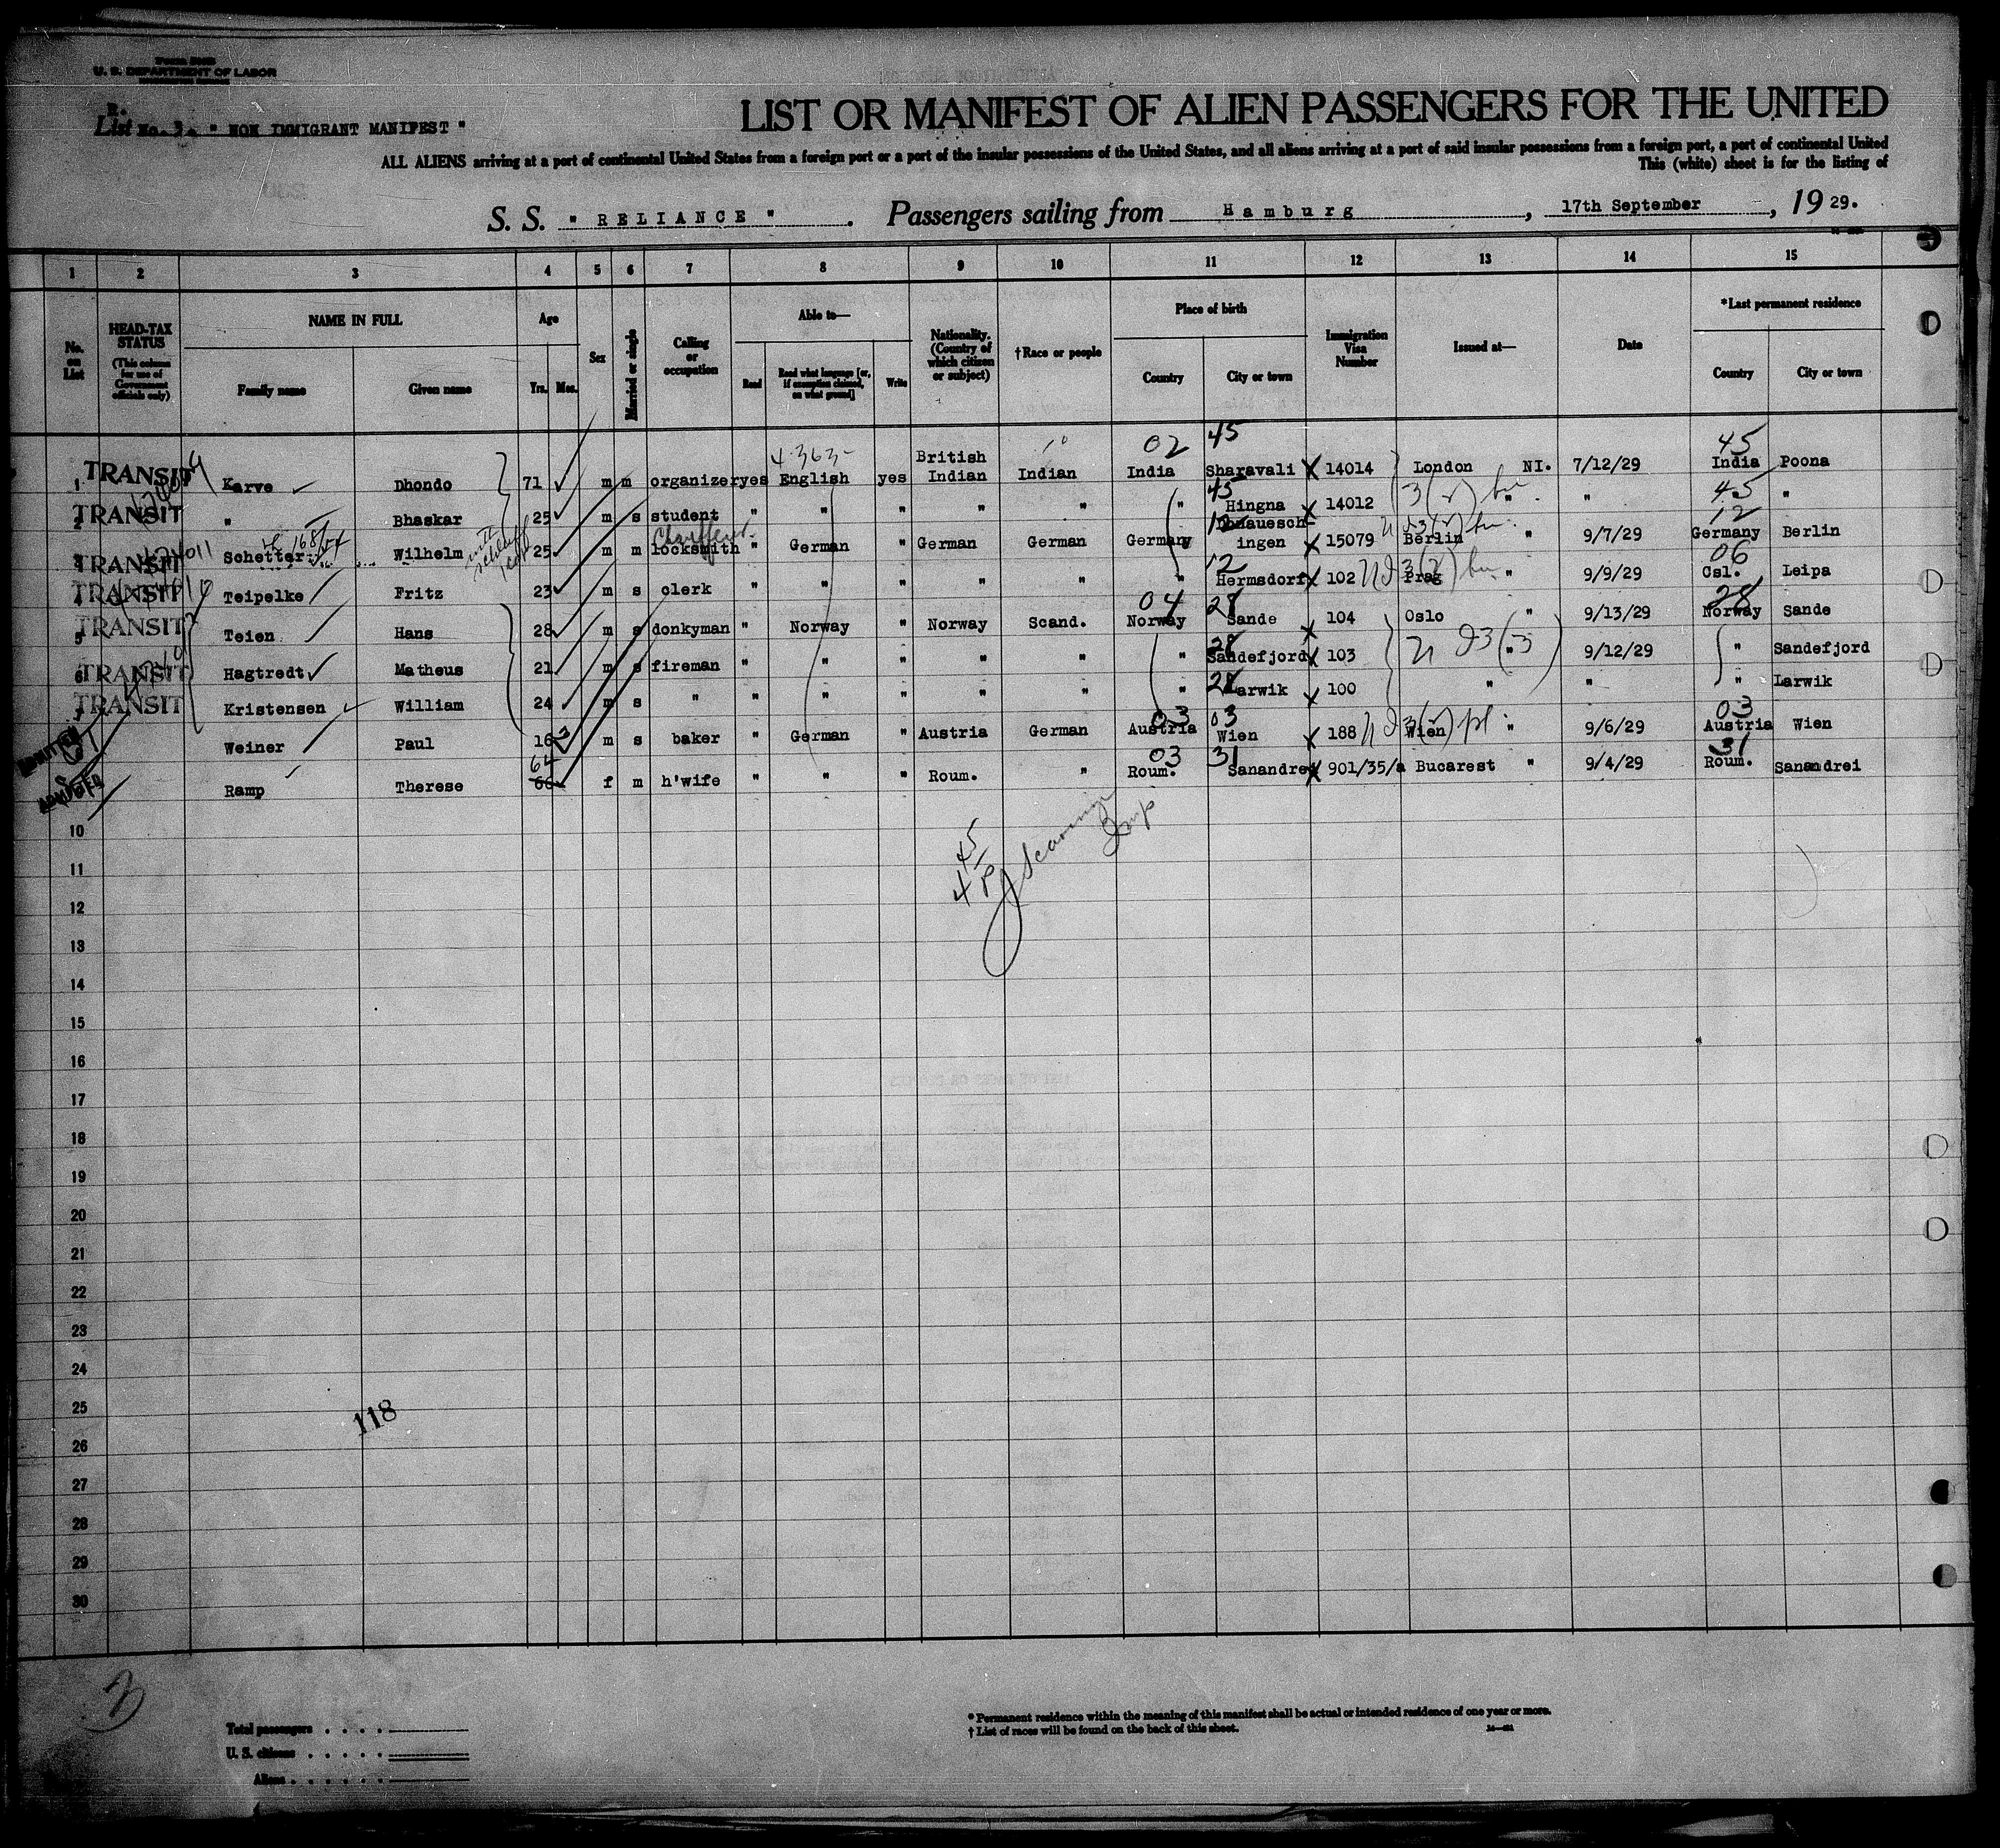 Form 500B
U. S. DEPARTMENT OF LABOR
R.
List No. 3. " NON IMMIGRANT MANIFEST "
LIST OR MANIFEST OF ALIEN PASSENGERS FOR THE UNITED
ALL ALIENS arriving at a port of continental United States from a foreign port or a port of the insular possessions of the United States, and all aliens arriving at a port of said insular possessions from a foreign port, a port of continental United
This (white) sheet is for the listing of
S. S. " RELIANCE " . Passengers sailing from Hamburg , 17th September , 19 29.
1 2 3 4 5 6 7 8 9 10 11 12 13 14 15
No. on List
HEAD-TAX STATUS (This column for use of Government officials only)
NAME IN FULL Family name Given name
Age Yrs. Mos.
Sex
Married or single
Calling or occupation
Able to— Read Read what language [or, if exemption claimed, on what ground] Write
Nationality. (Country of which citizen or subject)
†Race or people
Place of birth Country City or town
Immigration Visa Number
Issued at—
Date
*Last permanent residence Country City or town
4-363- 02 45 45
1 TRANSIT Karve Dhondo 71 m m organizer yes English yes British Indian Indian India Sharavali 14014 London NI. 7/12/29 India Poona
45 45
2 TRANSIT " Bhaskar 25 m s student " " " " " " Hingna 14012 " " " "
Chauffeur 12 12
3 TRANSIT Schetter Wilhelm 25 m m locksmith " German " German German Germany Donaueschingen 15079 Berlin " 9/7/29 Germany Berlin
12 06
4 TRANSIT Teipelke Fritz 23 m s clerk " " " " " " Hermsdorf 102 Prag " 9/9/29 Csl. Leipa
04 28 28
5 TRANSIT Teien Hans 28 m s donkyman " Norway " Norway Scand. Norway Sande 104 Oslo " 9/13/29 Norway Sande
28
6 TRANSIT Hagtredt Matheus 21 m s fireman " " " " " " Sandefjord 103 " 9/12/29 " Sandefjord
28
7 TRANSIT Kristensen William 24 m s " " " " " " " Larwik 100 " " " Larwik
03 03 03
Weiner Paul 16 m s baker " German " Austria German Austria Wien 188 Wien " 9/6/29 Austria Wien
64 03 31 31
ADMITTED Ramp Therese 66 f m h'wife " " " Roum. " Roum. Sanandrei 901/35/a Bucarest " 9/4/29 Roum. Sanandrei
10
11
12
13
14
15
16
17
18
19
20
21
22
23
24
25
118
26
27
28
29
30
3
Total passengers . . . .
U. S. citizens . . . . .
Aliens . . . . . .
* Permanent residence within the meaning of this manifest shall be actual or intended residence of one year or more.
† List of races will be found on the back of this sheet.